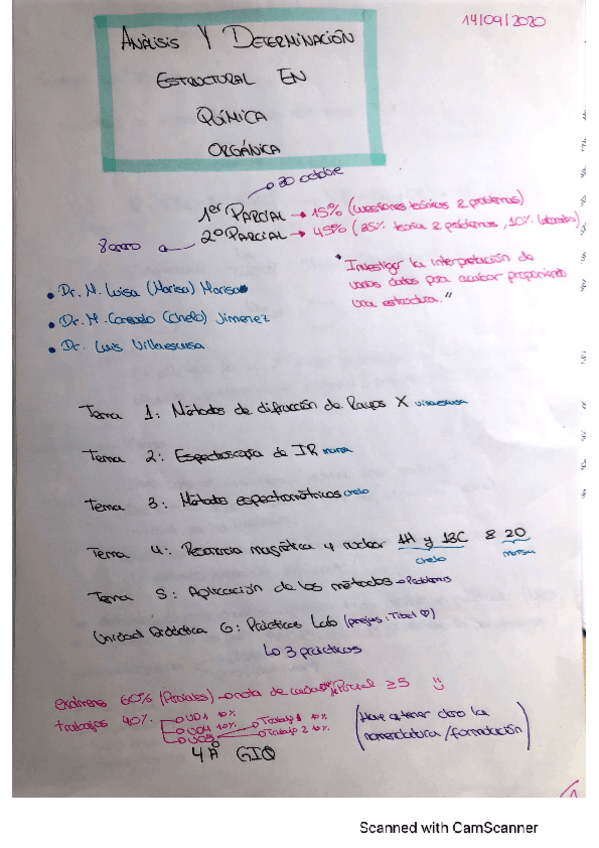 14/09/2020
ANÁLISIS Y DETERMINACIÓN
ESTRUCTURAL EN
QUÍMICA
ORGÁNICA
30 octubre
1er PARCIAL → 15% (cuestiones teóricas 2 problemas)
8 enero 2º PARCIAL → 45% (35% teoría 2 problemas, 10% laboratorio)
"Investigar la interpretación de
varios datos para acabar proponiendo
una estructura."
• Dr. M. Luisa (Marisa) Marisa
• Dr. M. Consuelo (Chelo) Jimenez
• Dr. Luis Villaescusa
Tema 1: Métodos de difracción de Rayos X villaescusa
Tema 2: Espectroscopía de IR marisa
Tema 3: Métodos espectrométricos chelo
Tema 4: Resonancia magnética y nuclear 1H y 13C & 2D
chelo marisa
Tema 5: Aplicación de los métodos → Problemas
Unidad Didáctica 6: Prácticas Lab (parejas: Tibel ♡)
↳ 3 prácticas
exámenes 60% (Parciales) → nota de cada Parcial ≥5
trabajos 40%
UD1 10%
UD4 10%
UD5
Trabajo 1 10%
Trabajo 2 10%
(Hay que tener claro la
nomenclatura/formulación)
4A GIQ
1
Scanned with CamScanner